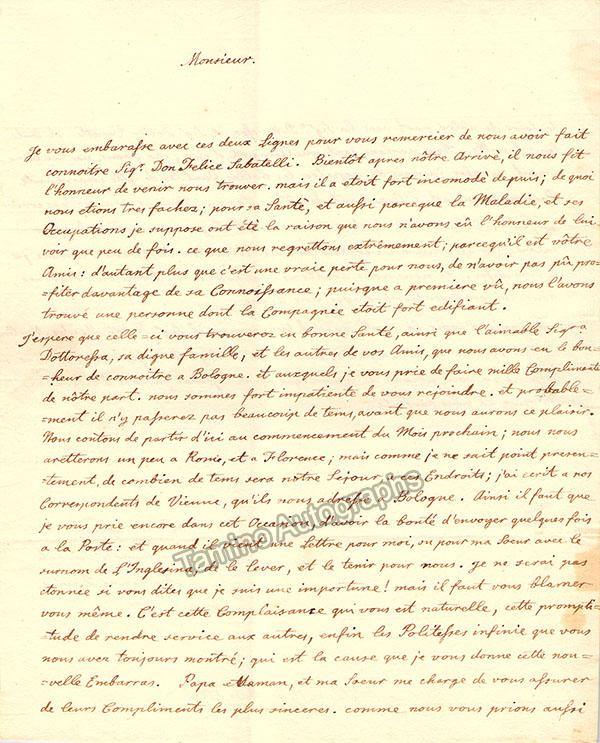 Monsieur.
Je vous embarasse avec ces deux Lignes pour vous remercier de nous avoir fait
connoitre Sigr. Don Felice Sabatelli. Bientôt apres nôtre Arrivè, il nous fit
l'honneur de venir nous trouver. mais il a etoit fort incomodè depuis; de quoi
nous etions tres fachez; pour sa Santè, et aussi parceque la Maladie, et ses
Occupations je suppose ont étè la raison que nous n'avons eû l'honneur de lui
voir que peu de fois. ce que nous regrettons extrêmement; parcequ'il est vôtre
Amis: d'autant plus que c'est une vraie perte pour nous, de n'avoir pas pû pro=
=fiter davantage de sa Connoissance; puisque a premiere vû, nous l'avons
trouvè une personne dont la Compagnée etoit fort edifiant.
J'espere que celle=ci vous trouveroz en bonne Santè, ainsi que l'aimable Sigra
Dottoressa, sa digne famille, et les autres de vos Amis, que nous avons eu le bon=
=heur de connoitre a Bologne. et auxquels je vous prie de faire mille Complimente
de nôtre part. nous sommes fort impatiente de vous rejoindre. et probable=
=ment il n'y passerez pas beaucoup de tems, avant que nous aurons ce plaisir.
Nous contons de partir d'ici au commencement du Mois prochain; nous nous
aretterons un peu a Rome, et a Florence; mais comme je ne sait point presen=
=tement, de combien de tems sera nôtre Sejour a ces Endroits; j'ai ecrit a nos
Correspondents de Vienne, qu'ils nous adresse a Bologne. Ainsi il faut que
je vous prie encore dans cet Occasion, d'avoir la bontè d'envoyer quelques fois
a la Poste: et quand il vient une Lettre pour moi, ou pour ma Soeur avec le
surnom de L'Inglesina, de le lever, et le tenir pour nous. je ne serai pas
etonnée si vous dites que je suis une importune! mais il faut vous blamer
vous même. C'est cette Complaisance qui vous est naturelle, cette prompti=
=tude de rendre service aux autres, enfin les Politesses infinie que vous
nous avez toujours montré; qui est la cause que je vous donne cette nou=
=velle Embarras. Papa et Maman, et ma Soeur me charge de vous assurer
de leurs Compliments les plus sinceres. comme nous vous prions aussi
Tamino Autographs